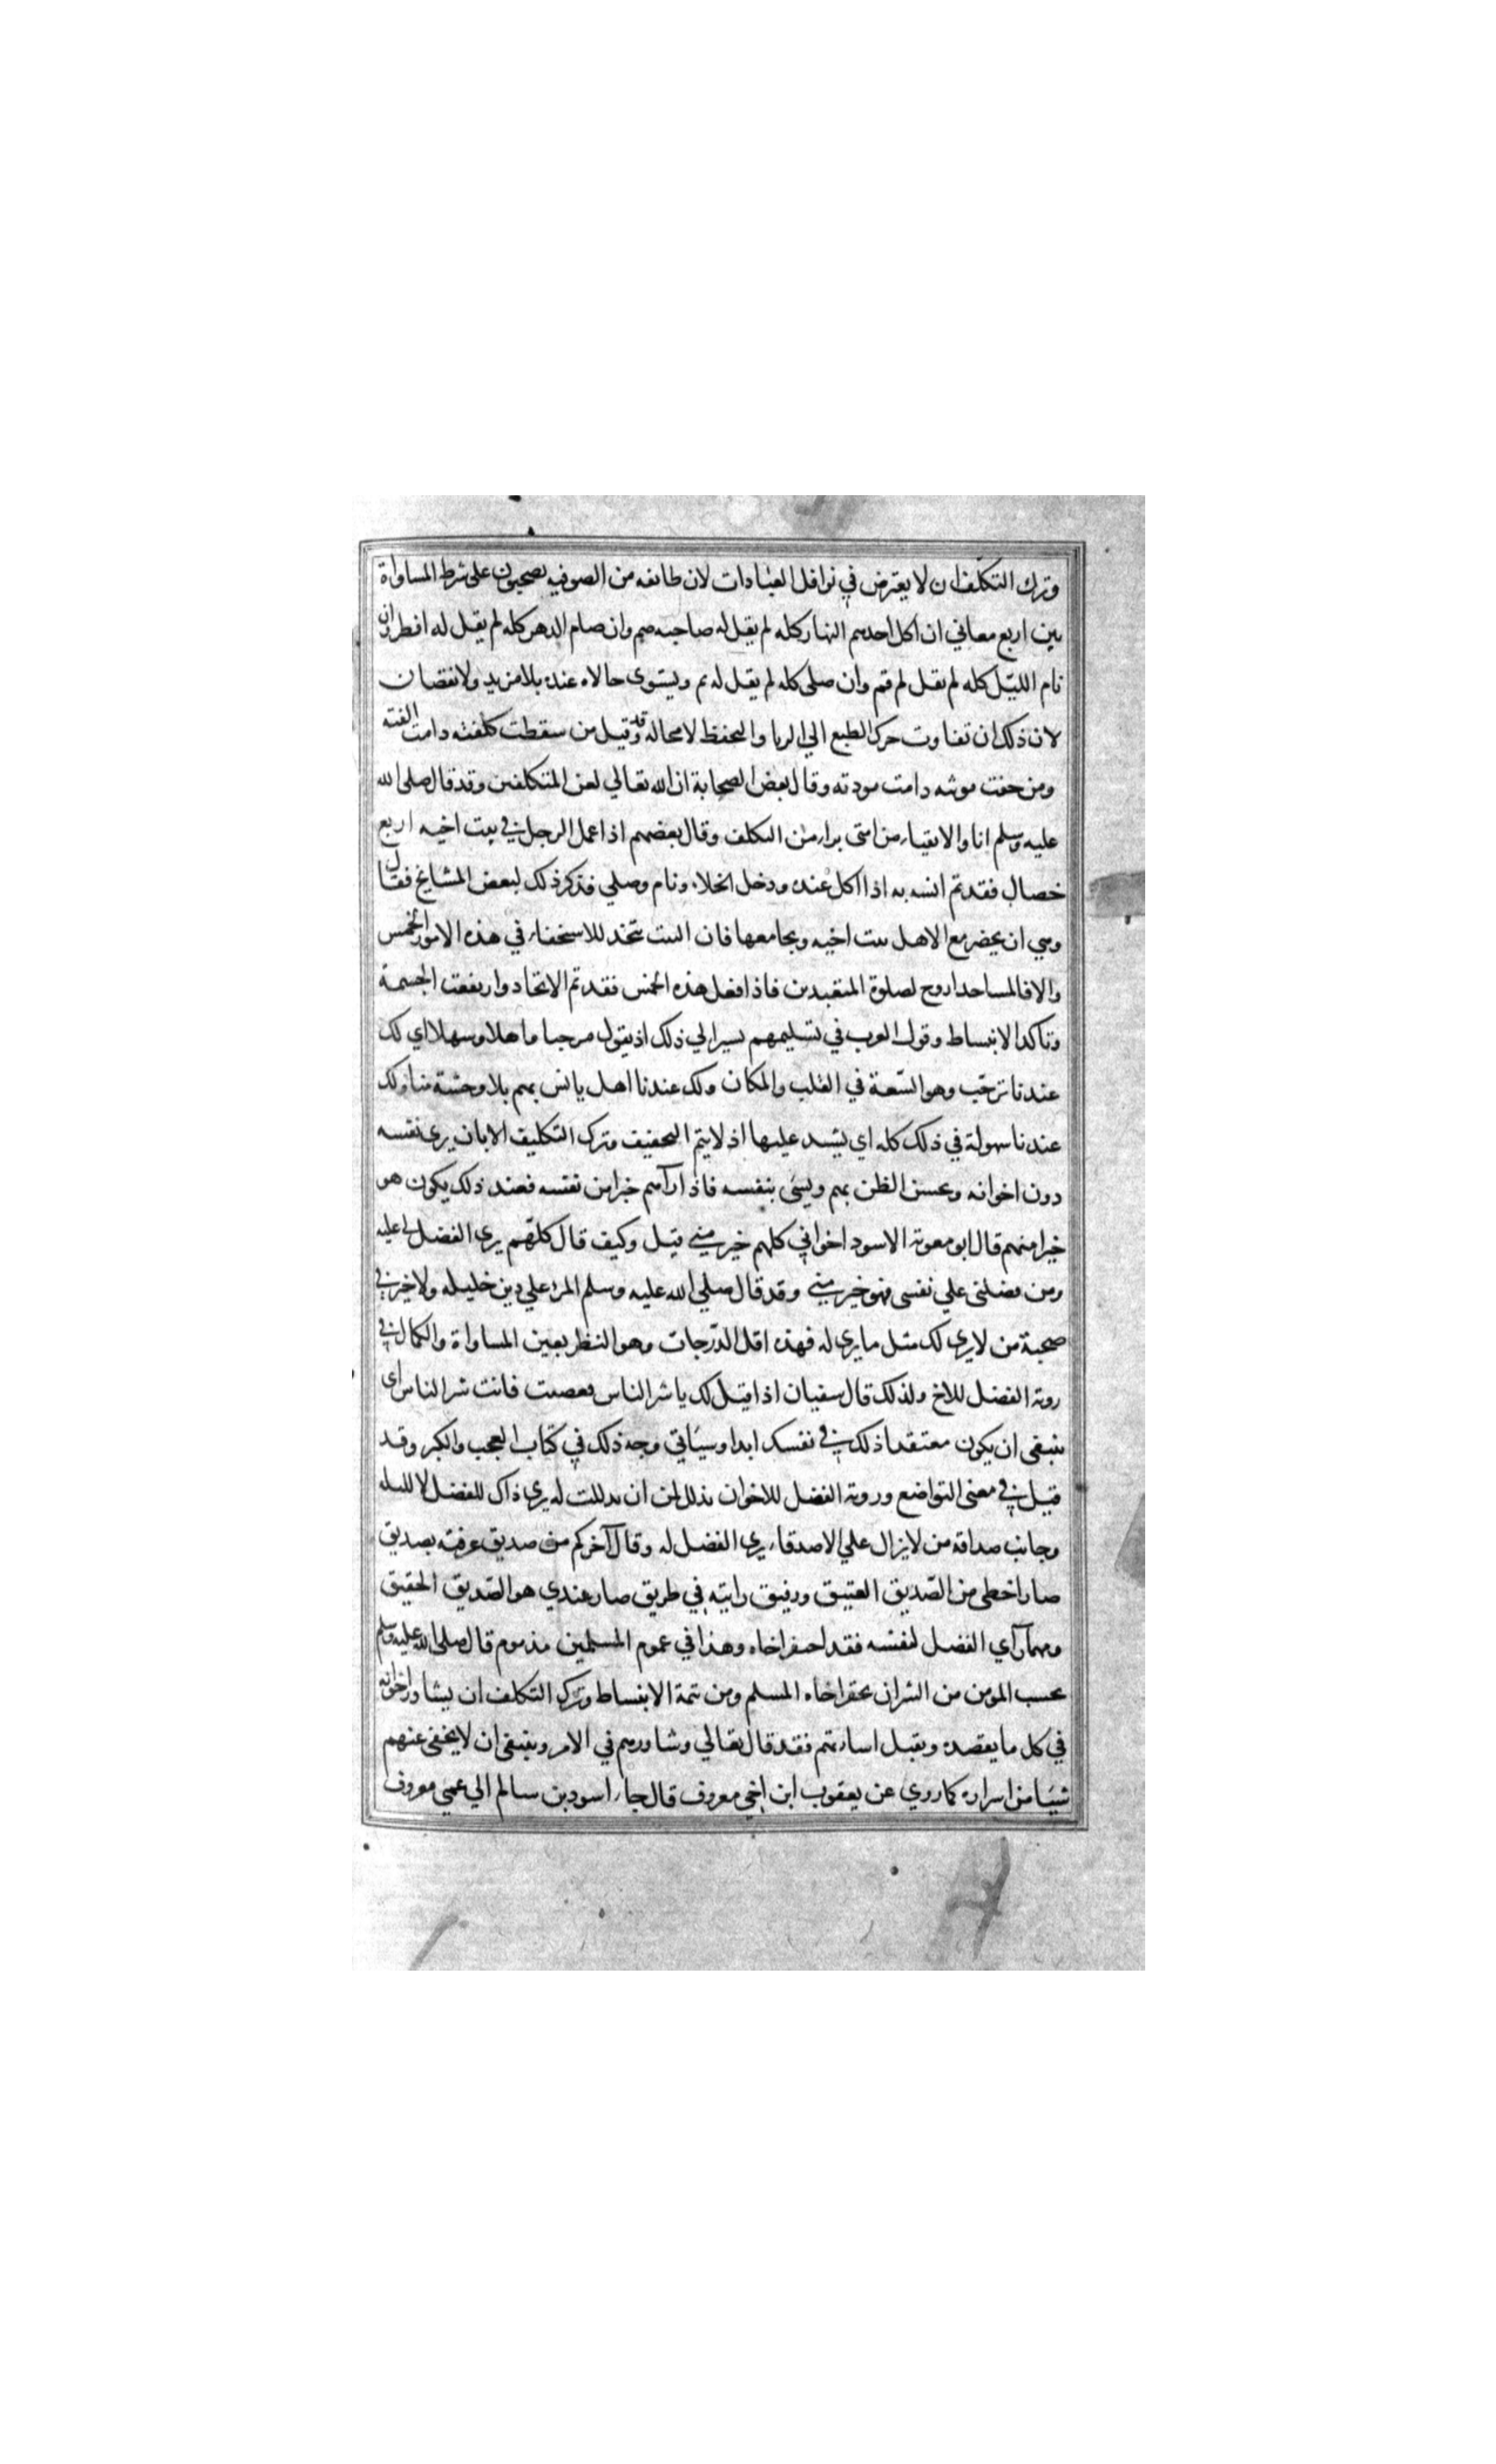 وترك التكلف ان لا يعترض في نوافل العبادات لان طائفه من الصوفيه يصحبون على شرط المساواة
بين اربع معاني ان اكل احدهم النهار كله لم يقل له صاحبه صم وان صام الدهر كله لم يقل له افطر وان
نام الليل كله لم يقل لم قم وان صلى كله لم يقل له نم ويستوى حالاه عنده بلا مزيد ولا نقصان
لان ذلك ان تفاوت حرك الطبع الي الريا والتحفظ لا محاله وقد قيل من سقطت كلفته دامت الفته
ومن خفت مونته دامت مودته وقال بعض الصحابة ان الله تعالي لعن المتكلفين وقد قال صلى الله
عليه وسلم انا والاتقياء من امتى براء من التكلف وقال بعضهم اذا عمل الرجل في بيت اخيه اربع
خصال فقد تم انسه به اذا اكل عنده ودخل الخلاء ونام وصلي فذكر ذلك لبعض المشايخ فقال
وهي ان يحضر مع الاهل بيت اخيه ويجامعها فان البيت يتخذ للاستخفاء في هذه الامور الخمس
والا فالمساجد اروح لصلوة المتعبدين فاذا فعل هذه الخمس فقد تم الاتحاد وارتفعت الحشمة
وتاكد الانبساط وقول العرب في تسليمهم يسير الي ذلك اذ يقول مرحبا واهلا وسهلا اي لك
عندنا ترحب وهو السعة في القلب والمكان ولك عندنا اهل يانس بهم بلا وحشة منا ولك
عندنا سهولة في ذلك كله اي يشتد عليها اذ لا يتم التخفيف وترك التكليف الا بان يرى نفسه
دون اخوانه ويحسن الظن بهم ويسئ بنفسه فاذا رآهم خيرا من نفسه فعند ذلك يكون هو
خيرا منهم قال ابو معوية الاسود اخواني كلهم خير مني قيل وكيف قال كلهم يرى الفضل لي عليه
ومن فضلني علي نفسى فهو خير مني وقد قال صلي الله عليه وسلم المرء علي دين خليله ولا خير في
صحبة من لا يرى لك مثل ما يرى له فهذه اقل الدرجات وهو النظر بعين المساواة والكمال في
روية الفضل للاخ ولذلك قال سفيان اذا قيل لك يا شر الناس فغضبت فانت شر الناس اى
ينبغى ان يكون معتقدا ذلك في نفسك ابدا وسيأتي وجه ذلك في كتاب العجب والكبر وقد
قيل في معنى التواضع وروية الفضل للاخوان تذلل لمن ان تذللت له يرى ذاك للفضل لا للبله
وجانب صداقة من لا يزال علي الاصدقاء يرى الفضل له وقال آخر كم من صديق عرفته بصديق
صار احظى من الصديق العتيق ورفيق رايته في طريق صار عندي هو الصديق الحقيق
ومهما رآي الفضل لنفسه فقد احتقر اخاه وهذا في عموم المسلمين مذموم قال صلى الله عليه وسلم
بحسب المومن من الشر ان يحقر اخاه المسلم ومن تتمة الانبساط وترك التكلف ان يشاور اخوانه
في كل ما يقصده ويقبل اساراتهم فقد قال تعالي وشاورهم في الامر وينبغى ان لا يخفى عنهم
شيئا من اسراره كما روي عن يعقوب ابن اخي معروف قال جاء اسود بن سالم الي عمي معروف